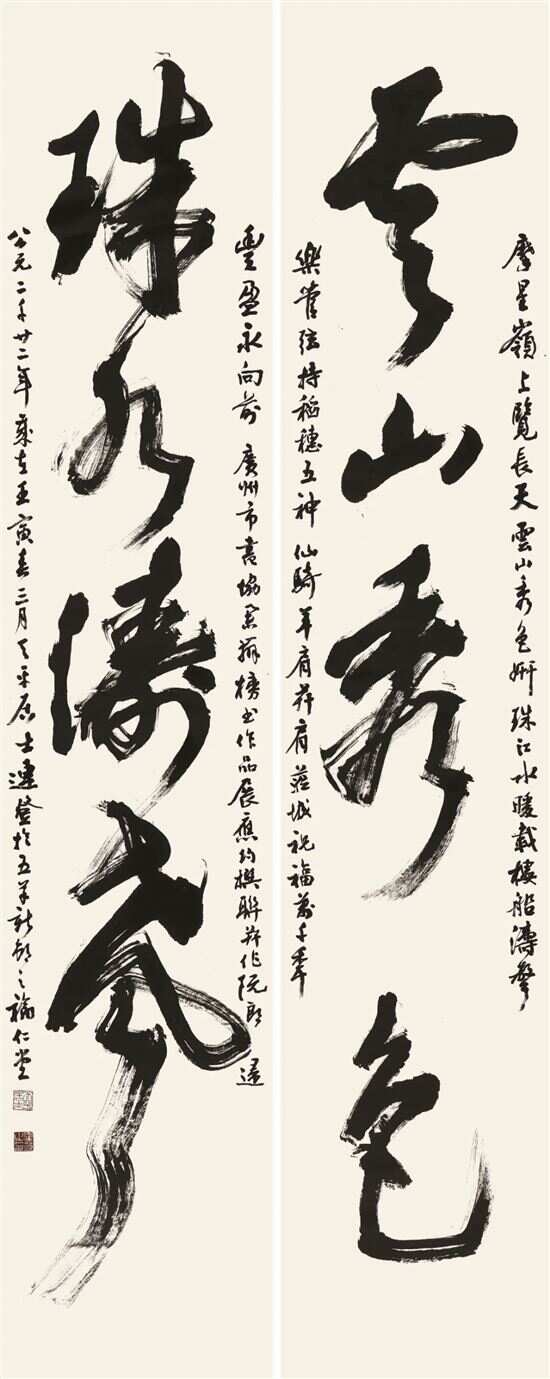 云山秀色
摩星嶺上覽長天雲山秀色妍珠江水暖載樓船濤聲
樂管弦持稻穗五神仙騎羊肩并肩城祝福萬千年
豐盈永向前 廣州市書協舉辦榜書作品展應約撰聯并作阮郎歸
珠水濤聲
公元二千廿二年歲在壬寅春三月天平居士連登於五羊新邨之仁堂